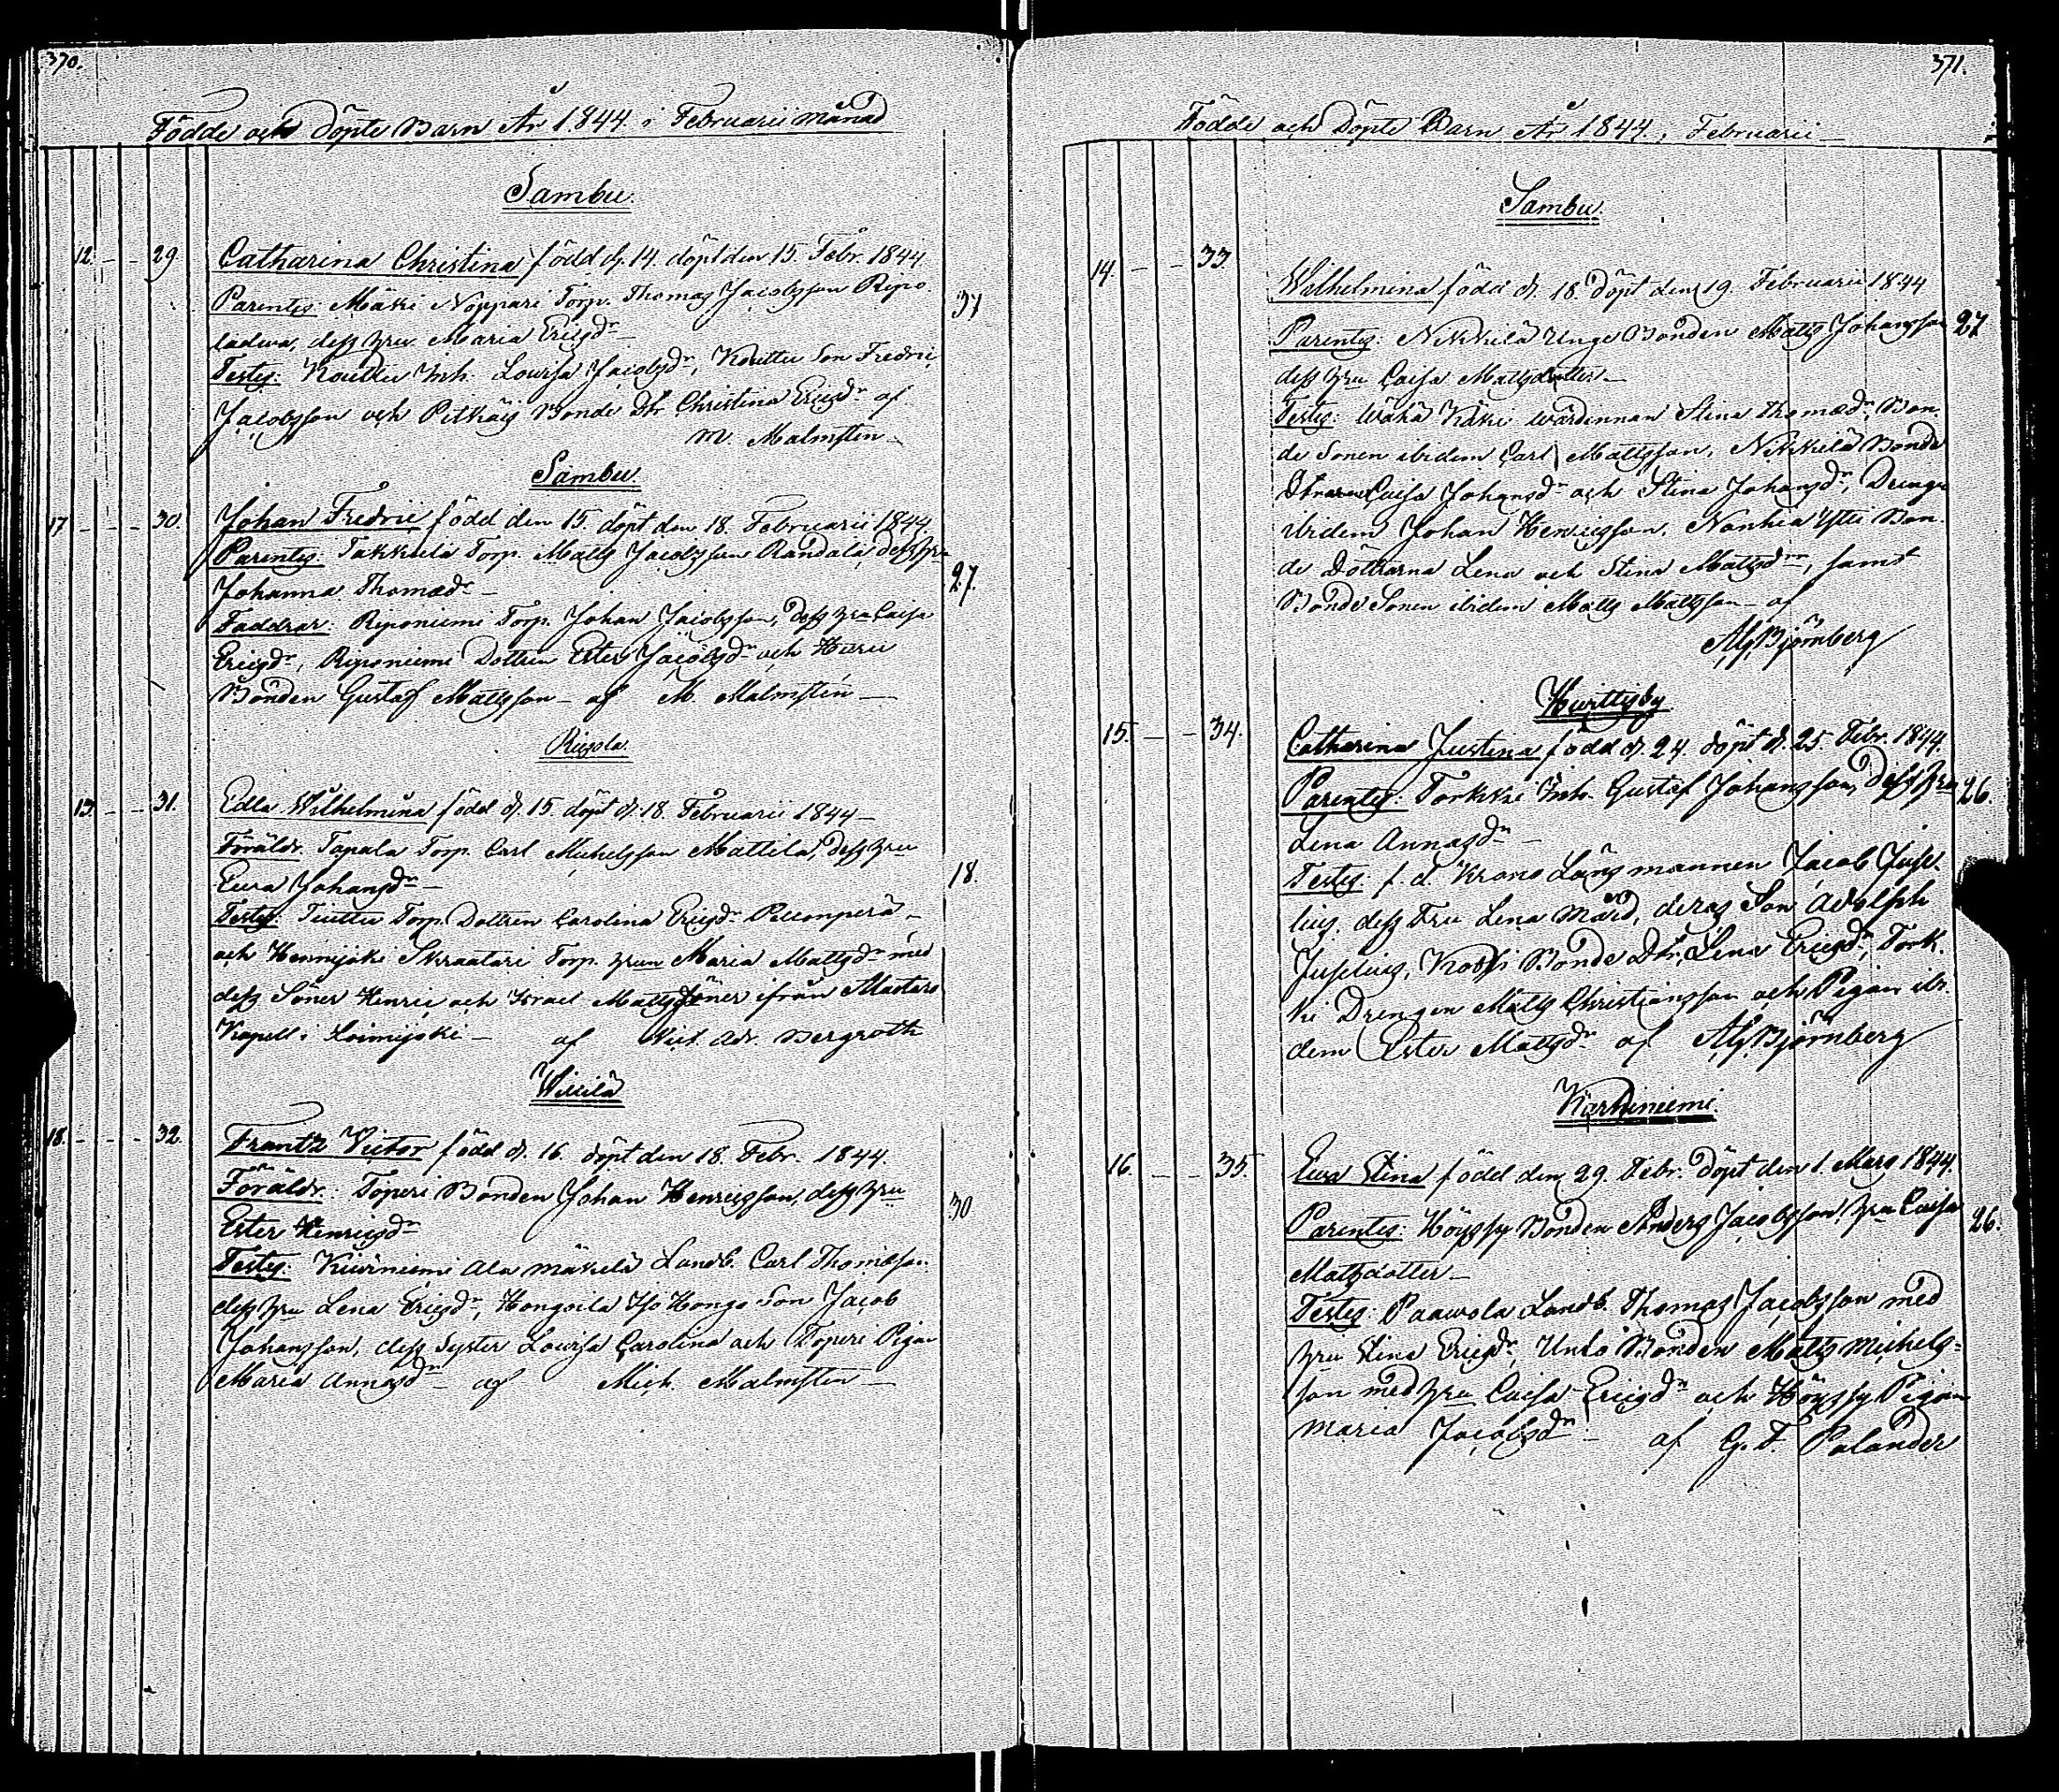 370.
Födde och Döpte Barn År 1844 i Februarii månad
Sambu.
12. - - 29. Catharina Christina född d. 14. döpt den 15. Febr. 1844.
Parentes: Mäki Noppari Torp. Thomas Jacobsson Ripo.
ladwa, dess hru Maria Ericsdr - 37
Testes: Kouttu Inh. Lowisa Jacobsdr, Kouttu Son Fredric
Jacobsson och Pitkäis Bonde Dtr Christina Ericsdr af
M. Malmsten
Sambu.
17 - - - 30. Johan Fredric född den 15. döpt den 18. Februarii 1844.
Parentes: Takkula Torp. Matts Jacobsson Randala, dess hru
Johanna Thomædr - 27.
Faddrar: Riponiemi Torp. Johan Jacobsson, dess hru Caisa
Ericsdr, Riponiemi Dottren Ester Jacobsdr och Harii
Bonden Gustaf Mattsson - af M. Malmstén -
13. - - 31. Edla Wilhelmina född d. 15. döpt d. 18. Februarii 1844 -
Föräldr. Tapala Torp. Carl Michelsson Mattila, dess hru
Ewa Johansdr - 18.
Testes: Torp. Dottren Carolina Ericsdr
och Hennijoki Skraatari Torp. hrun Maria Mattsdr med
dess Söner Henric och Israel Matts Söner ifrån
Kapell i Loimijoki - af Vict. Adr. Bergroth
18. - - - 32. Frantz Victor född d. 16. döpt den 18. Febr. 1844.
Föräldr.: Töperi Bonden Johan Henricsson, dess hru
Ester Henricsdr 30
Testes: Kiviniemi Ala Mäkelä Landb. Carl Thomasson
dess hru Lena Ericsdr, Hongoila Iso Hongo Son Jacob
Johansson, dess Syster Lowisa Carolina och Töperi Pigan
Maria Annasdr - af Mich. Malmsten -
371.
Födde och Döpte Barn År 1844, Februarii
Sambu.
14. - - 33. Wilhelmina född d. 18. döpt den 19. Februarii 1844
Parentes: Nikkilä Unge Bonden Matts Johansson 27
dess hru Caisa Mattsdotter -
Testes: Wähä Käki wärdinnan Stina Thomædr, Bon-
de Sonen ibidem Carl Mattsson, Nikkilä Bonde
Dtrarne Caisa Johansdr och Stina Johansdr, Drenge
ibidem Johan Henricsson, Nanhia Ylli Bon-
de Döttrarna Lena och Stina Mattsdr, samt
Bonde Sonen ibidem Matts Mattsson - af
Björnberg
Hurttisby
15. - - 34. Catharina Justina född d. 24. döpt d. 25. Febr. 1844.
Parentes: Torkki Inh. Gustaf Johansson, dess hru 26.
Lena Annasdr -
Testes: f. d. Krono Länsmannen Jacob Juse-
lius, dess Fru Lena Mård, deras Son Adolph
Juselius, Bonde Dtr. Lena Ericsdr, Tork-
ki Drengen Matts Christiansson och Pigan ibi-
dem Ester Mattsdr af Björnberg
Karhiniemi
16. - - 35. Ewa Stina född den 29. Febr. döpt den 1. Mars 1844.
Parentes: Höyssy Bonden Anders Jacobsson, hru Caisa 26.
Matsdotter -
Testes: Paawola Landb. Thomas Jacobsson med
hru Stina Ericsdr, Unto Bonden Matts Michels-
son med hru Caisa Ericsdr och Höyssy Pigan
Maria Jacobsdr - af G. F. Palander